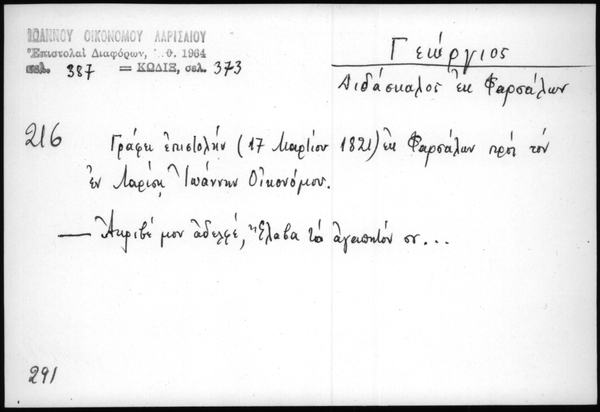 ΙΩΑΝΝΟΥ ΟΙΚΟΝΟΜΟΥ ΛΑΡΙΣΑΙΟΥ
Ἐπιστολαὶ Διαφόρων, 1964
σελ. 387 = ΚΩΔΙΞ, σελ. 373
Γεώργιος
Διδάσκαλος ἐκ Φαρσάλων
216 Γράφει ἐπιστολὴν (17 Μαρτίου 1821) ἐκ Φαρσάλων πρὸς τὸν
ἐν Λαρίσῃ Ἰωάννην Οἰκονόμου.
— Ἀκριβέ μου ἀδελφέ, Ἔλαβα τὸ ἀγαπητόν σου...
291